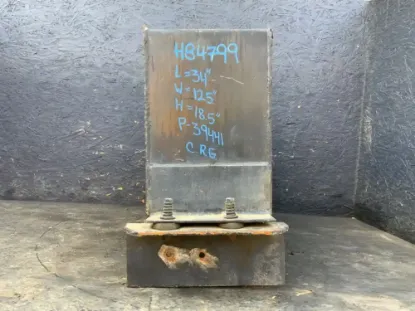 HB4799
L=34"
W=12.5"
H=18.5"
P-39441
C.R.G